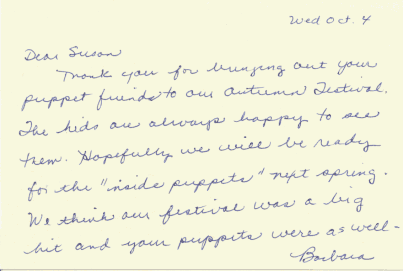 Wed Oct. 4
Dear Susan
Thank you for bringing out your
puppet friends to our Autumn Festival.
The kids are always happy to see
them. Hopefully we will be ready
for the "inside puppets" next spring.
We think our festival was a big
hit and your puppets were as well-
Barbara